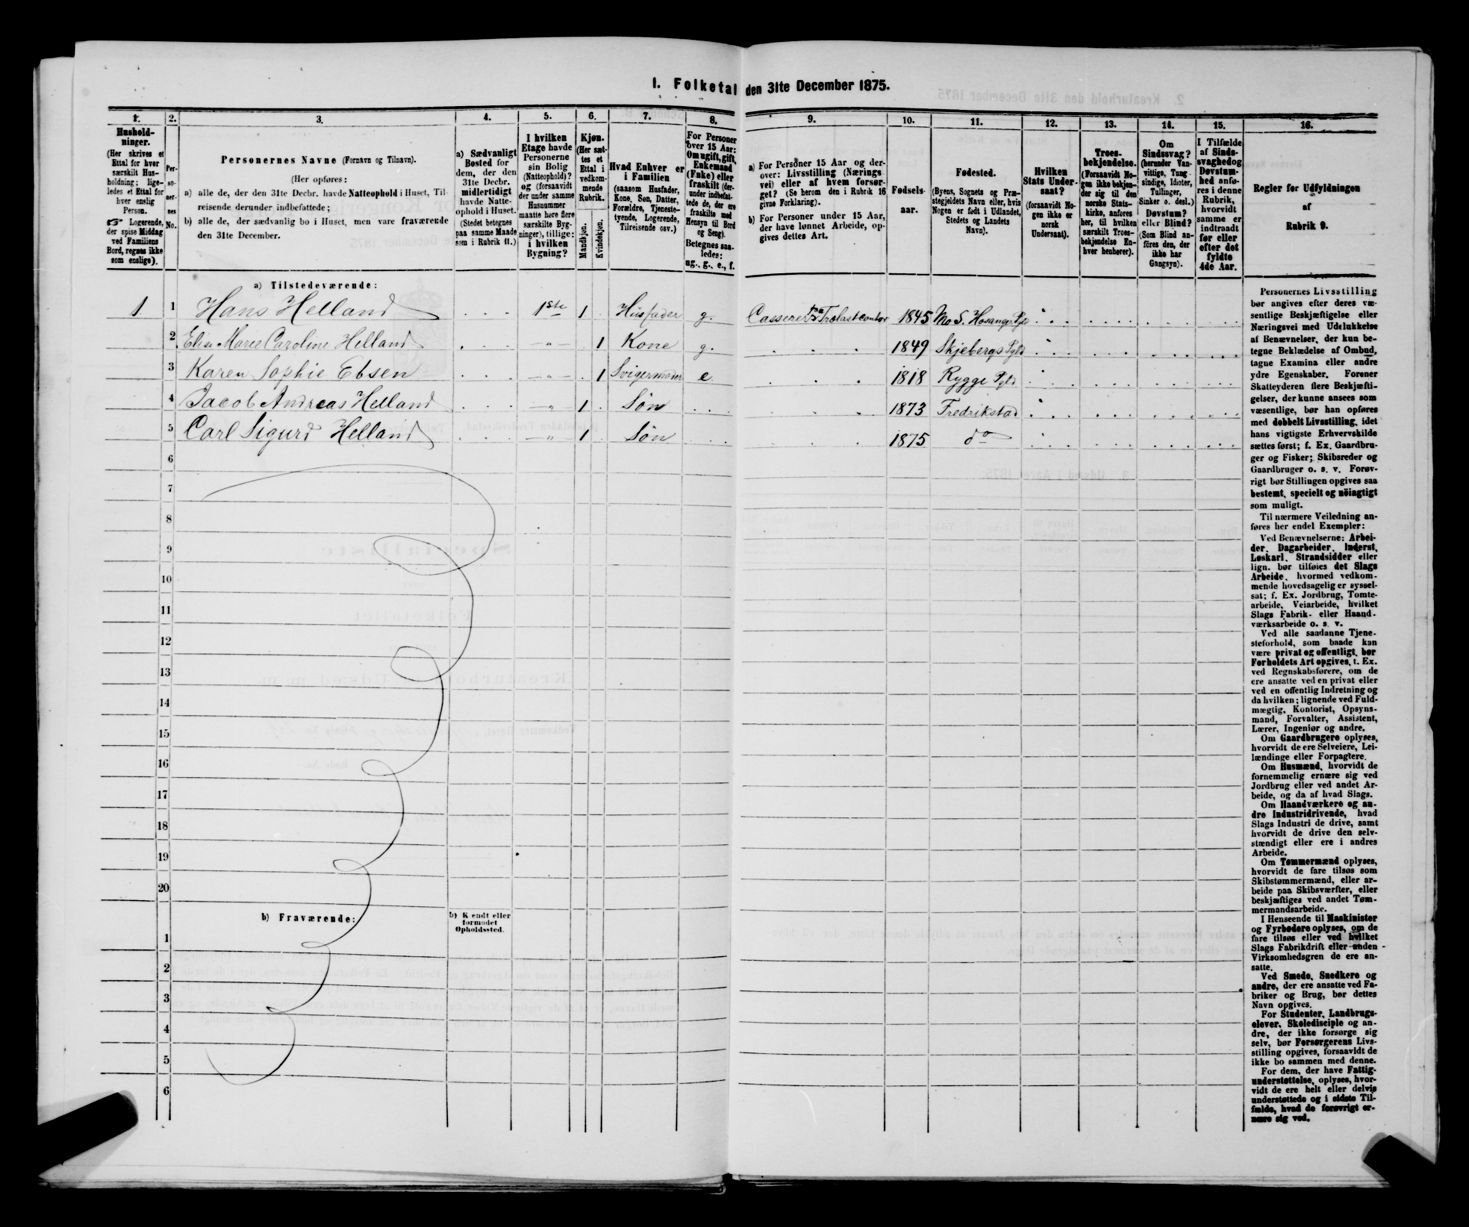 1. Folketal den 31te December 1875.
1.
Hushold-
ninger.
(Her skrives et
Ettal for hver
særskilt Hus-
holdning; lige-
ledes et Ettal for
hver enslig
Person.
☞ Logerende,
der spise Middag
ved Familiens
Bord, regnes ikke
som enslige).
2.
Per-
so-
ner-
nes
No.
3.
Personernes Navne (Fornavn og Tilnavn).
(Her opføres:
a) alle de, der den 31te Decbr. havde Natteophold i Huset, Til-
reisende derunder indbefattede;
b) alle de, der sædvanlig bo i Huset, men vare fraværende
den 31te December.
4.
a) Sædvanligt
Bosted for
dem, der den
31te Decbr.
midlertidigt
havde Natte-
ophold i Huset.
(Stedet betegnes
paa samme Maade
som i Rubrik 11.)
5.
I hvilken
Etage havde
Personerne
sin Bolig
(Natteophold)?
og (forsaavidt
der under samme
Husnummer
maatte høre flere
særskilte Byg-
ninger), tillige:
i hvilken
Bygning?
6.
Kjøn.
(Her sæt-
tes et
Ettal i
vedkom-
mende
Rubrik.
Mandkjøn.
Kvindekjøn.
7.
Hvad Enhver er
i Familien
(saasom Husfader,
Kone, Søn, Datter,
Forældre, Tjeneste-
tyende, Logerende,
Tilreisende osv.)
8.
For Personer
over 15 Aar:
Om ugift, gift,
Enkemand
(Enke) eller
fraskilt (der-
under indbefat-
tede de, der ere
fraskilte med
Hensyn til Bord
og Seng).
Betegnes saa-
ledes:
ug., g., e., f.
9.
a) For Personer 15 Aar og der-
over: Livsstilling (Nærings-
vei) eller af hvem forsør-
get? (Se herom den i Rubrik 16
givne Forklaring).
b) For Personer under 15 Aar,
der have lønnet Arbeide, op-
gives dettes Art.
10.
Fødsels-
aar.
11.
Fødested.
(Byens, Sognets og Præ-
stegjeldets Navn eller, hvis
Nogen er født i Udlandet,
Stedets og Landets
Navn).
12.
Hvilken
Stats Under-
saat?
(forsaavidt No-
gen ikke er
norsk
Undersaat).
13.
Troes-
bekjendelse.
(Forsaavidt No-
gen ikke bekjen-
der sig til den
norske Stats-
kirke, anføres
her, til hvilket
særskilt Troes-
bekjendelse En-
hver henhører).
14.
Om
Sindssvag?
(herunder Van-
vittige, Tung-
sindige, Idioter,
Tullinger,
Sinker o. desl.)
Døvstum?
eller Blind?
(Som Blind an-
føres den, der
ikke har
Gangsyn).
15.
I Tilfælde
af Sinds-
svaghed og
Døvstum-
hed anfø-
res i denne
Rubrik,
hvorvidt
samme er
indtraadt
før eller
efter det
fyldte
4de Aar.
16.
Regler for Udfyldningen
af
Rubrik 9.
a) Tilstedeværende:
1 1 Hans Helland 1ste 1 Husfader g. Casserer Trælastcontor 1845 Mo S.
2 Elise Marie Caroline Helland -"- 1 Kone g. 1849 Skjebergs Pgld
3 Karen Sophie Ebsen -"- 1 Svigermoder e 1818 Rygge Pgld
4 Jacob Andreas Helland -"- 1 Søn 1873 Fredrikstad
5 Carl Sigurd Helland -"- 1 Søn 1875 do
6
7
8
9
10
11
12
13
14
15
16
17
18
19
20
b) Fraværende:
b) Kjendt eller
formodet
Opholdssted.
1
2
3
4
5
6
Personernes Livsstilling
bør angives efter deres væ-
sentlige Beskjæftigelse eller
Næringsvei med Udelukkelse
af Benævnelser, der kun be-
tegne Beklædelse af Ombud,
tagne Examina eller andre
ydre Egenskaber. Forener
Skatteyderen flere Beskjæfti-
gelser, der kunne ansees som
væsentlige, bør han opføres
med dobbelt Livsstilling, idet
hans vigtigste Erhvervskilde
sættes først; f. Ex. Gaardbru-
ger og Fisker; Skibsreder og
Gaardbruger o. s. v. Forøv-
rigt bør Stillingen opgives saa
bestemt, specielt og nøiagtigt
som muligt.
Til nærmere Veiledning an-
føres her endel Exempler:
Ved Benævnelserne: Arbei-
der, Dagarbeider, Inderst,
Løskarl, Strandsidder eller
lign. bør tilføies det Slags
Arbeide, hvormed vedkom-
mende hovedsagelig er syssel-
sat; f. Ex. Jordbrug, Tomte-
arbeide, Veiarbeide, hvilket
Slags Fabrik- eller Haand-
værksarbeide o. s. v.
Ved alle saadanne Tjene-
steforhold, som baade kan
være privat og offentligt, bør
Forholdets Art opgives, t. Ex.
ved Regnskabsførere, om de
ere ansatte ved en privat eller
ved en offentlig Indretning og
da hvilken; lignende ved Fuld-
mægtig, Kontorist, Opsyns-
mand, Forvalter, Assistent,
Lærer, Ingeniør og andre.
Om Gaardbrugere oplyses,
hvorvidt de ere Selveiere, Lei-
lændinge eller Forpagtere.
Om Husmænd, hvorvidt de
fornemmelig ernære sig ved
Jordbrug eller ved andet Ar-
beide, og da af hvad Slags.
Om Haandværkere og an-
dre Industridrivende, hvad
Slags Industri de drive, samt
hvorvidt de drive den selv-
stændigt eller ere i andres
Arbeide.
Om Tømmermænd oplyses,
hvorvidt de fare tilsøs som
Skibstømmermænd, eller ar-
beide paa Skibsværfter, eller
beskjæftiges ved andet Tøm-
mermandsarbeide.
I Henseende til Maskinister
og Fyrbødere oplyses, om de
fare tilsøs eller ved hvilket
Slags Fabrikdrift eller anden
Virksomhedsgren de ere an-
satte.
Ved Smede, Snedkere og
andre, der ere ansatte ved Fa-
briker og Brug, bør dettes
Navn opgives.
For Studenter, Landbrugs-
elever, Skoledisciple og an-
dre, der ikke forsørge sig
selv, bør Forsørgerens Livs-
stilling opgives, forsaavidt de
ikke bo sammen med denne.
For dem, der have Fattig-
understøttelse, oplyses, hvor-
vidt de ere helt eller delvis
understøttede og i sidste Til-
fælde, hvad de forøvrigt er-
nære sig ved.